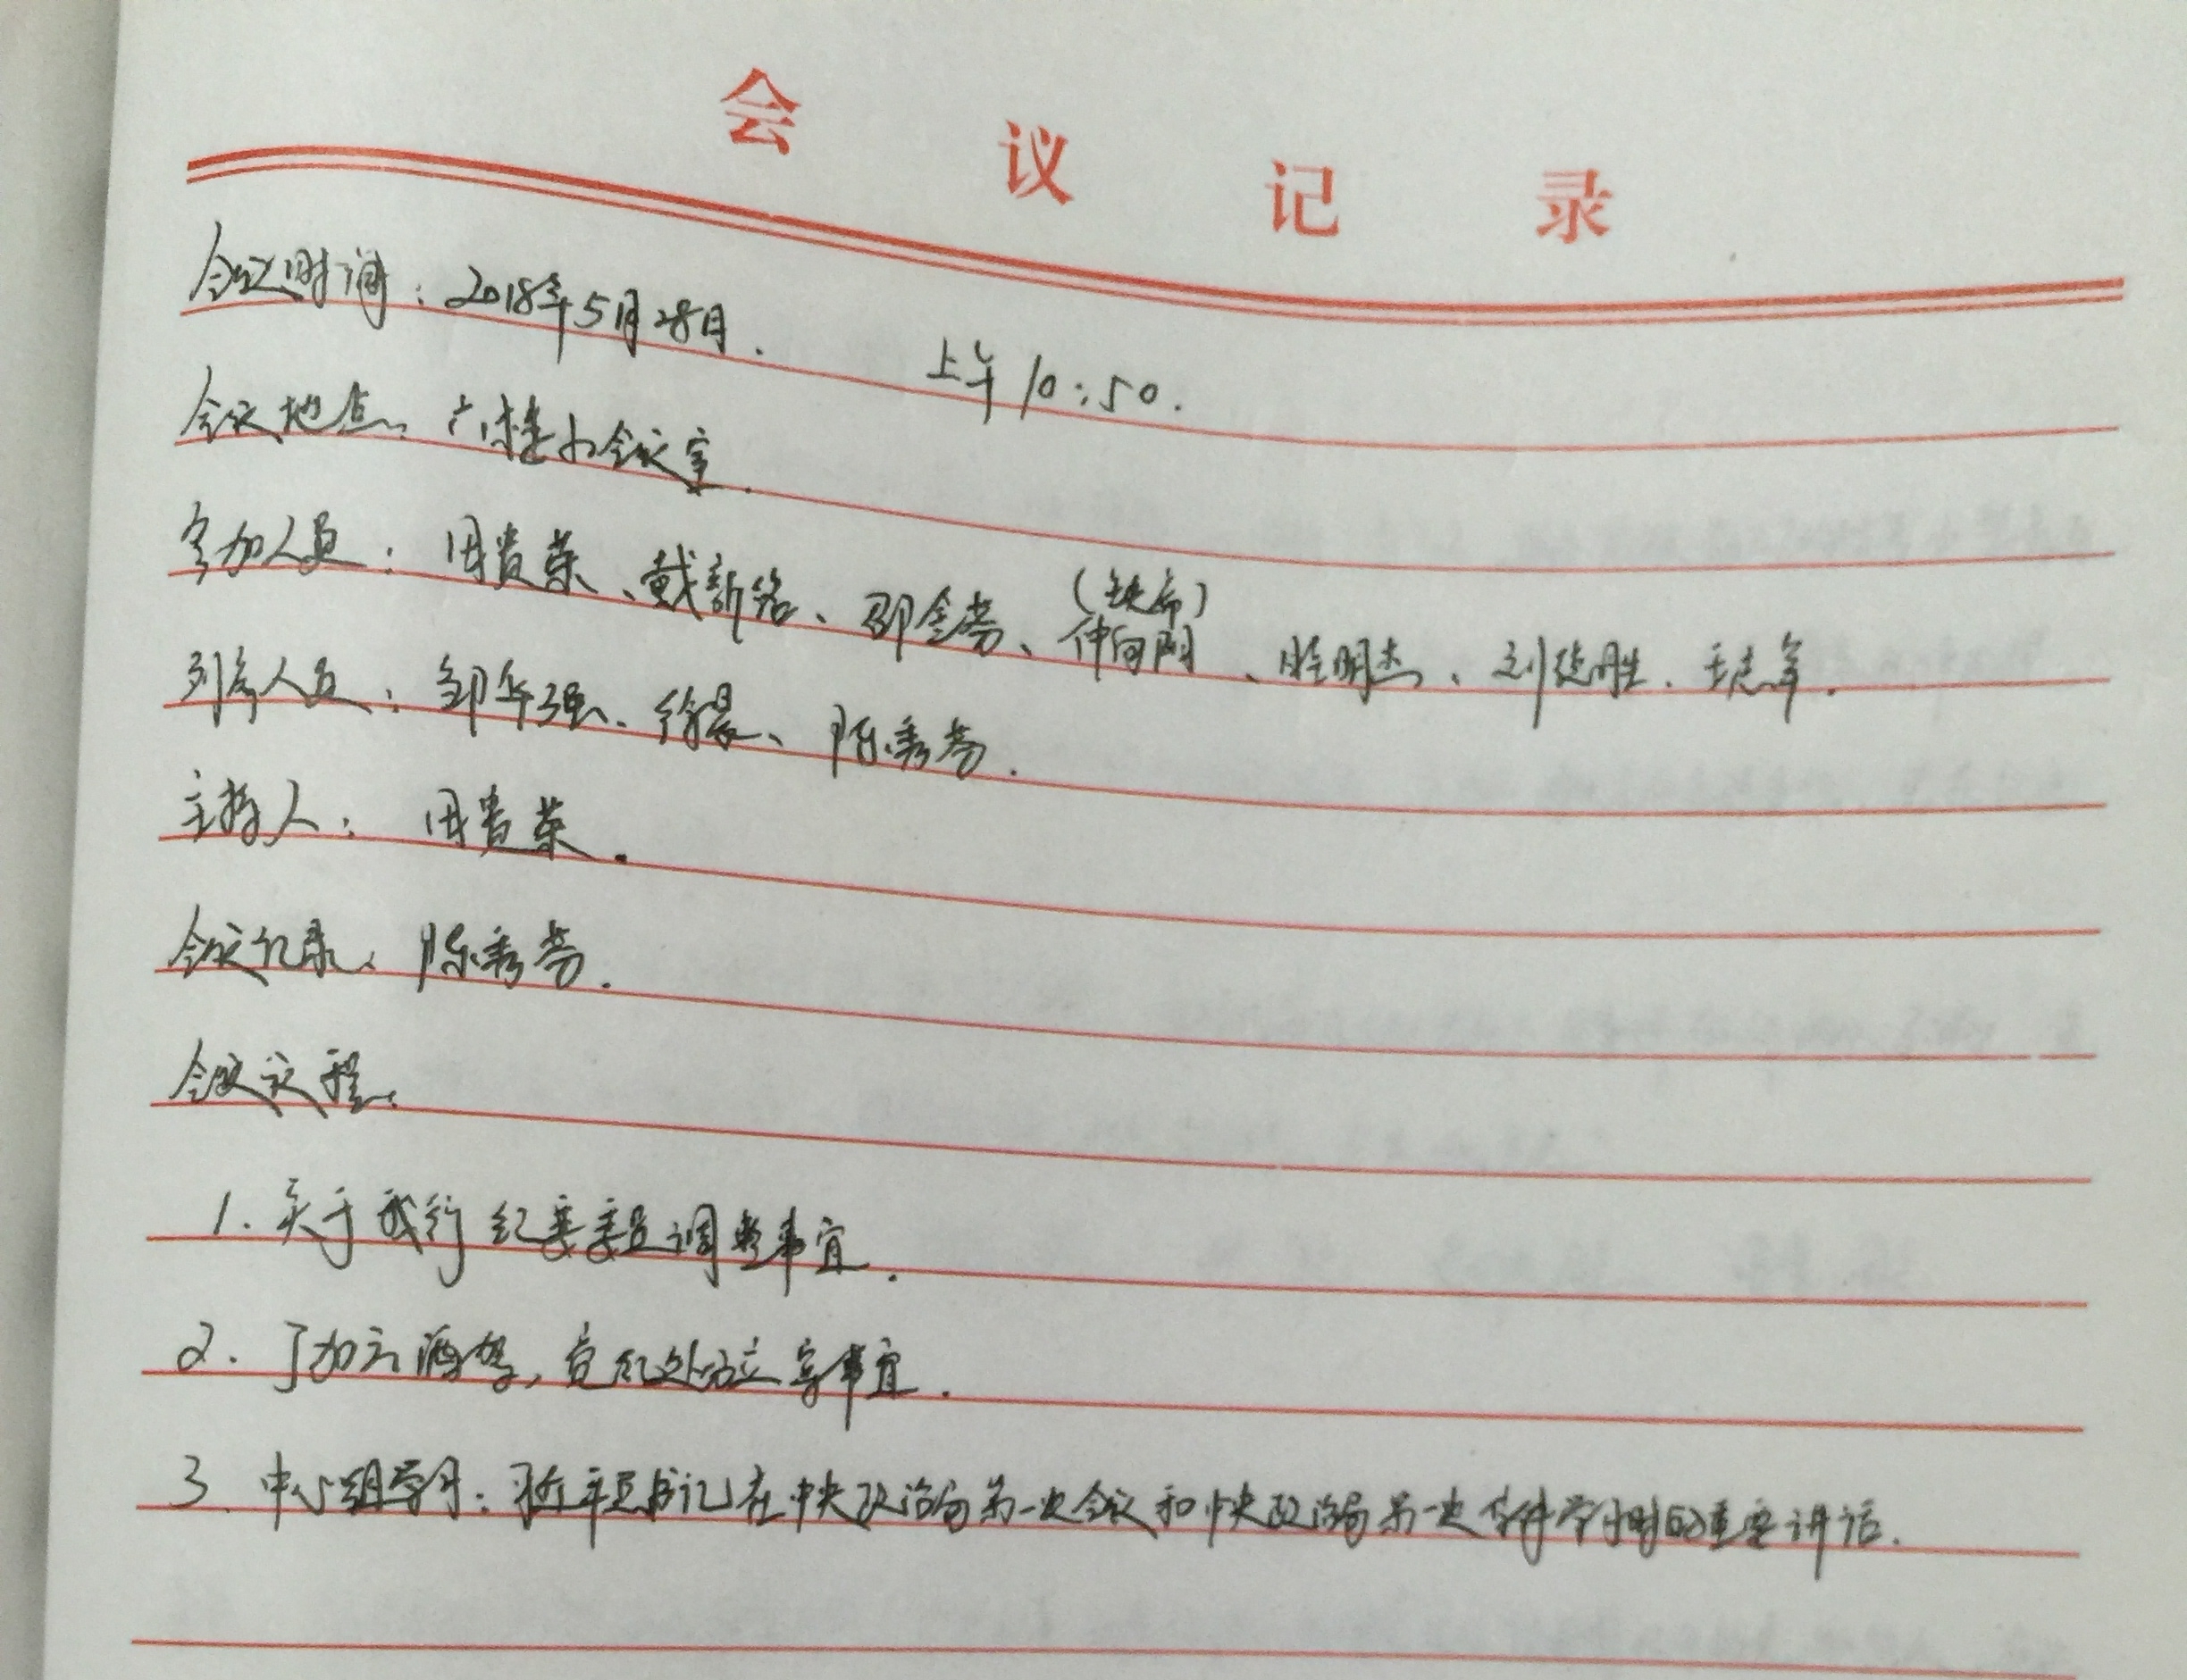 会议记录
会议时间：2018年5月28日. 上午10:50.
会议地点：六楼小会议室.
(缺席)
参加人员：周贵荣、戴新銘、邵金芳、仲向阳、明杰、刘德胜.王志军.
列席人员：邹华强、徐晨、陈秀芳.
主持人：周贵荣.
会议记录：陈秀芳.
会议议程：
1.关于我行纪委委员调整事宜.
2.丁加云酒驾，党纪处分立案事宜.
3.中心组学习：习近平总书记在中央政治局第一次会议和中央政治局第一次集体学习时的重要讲话.